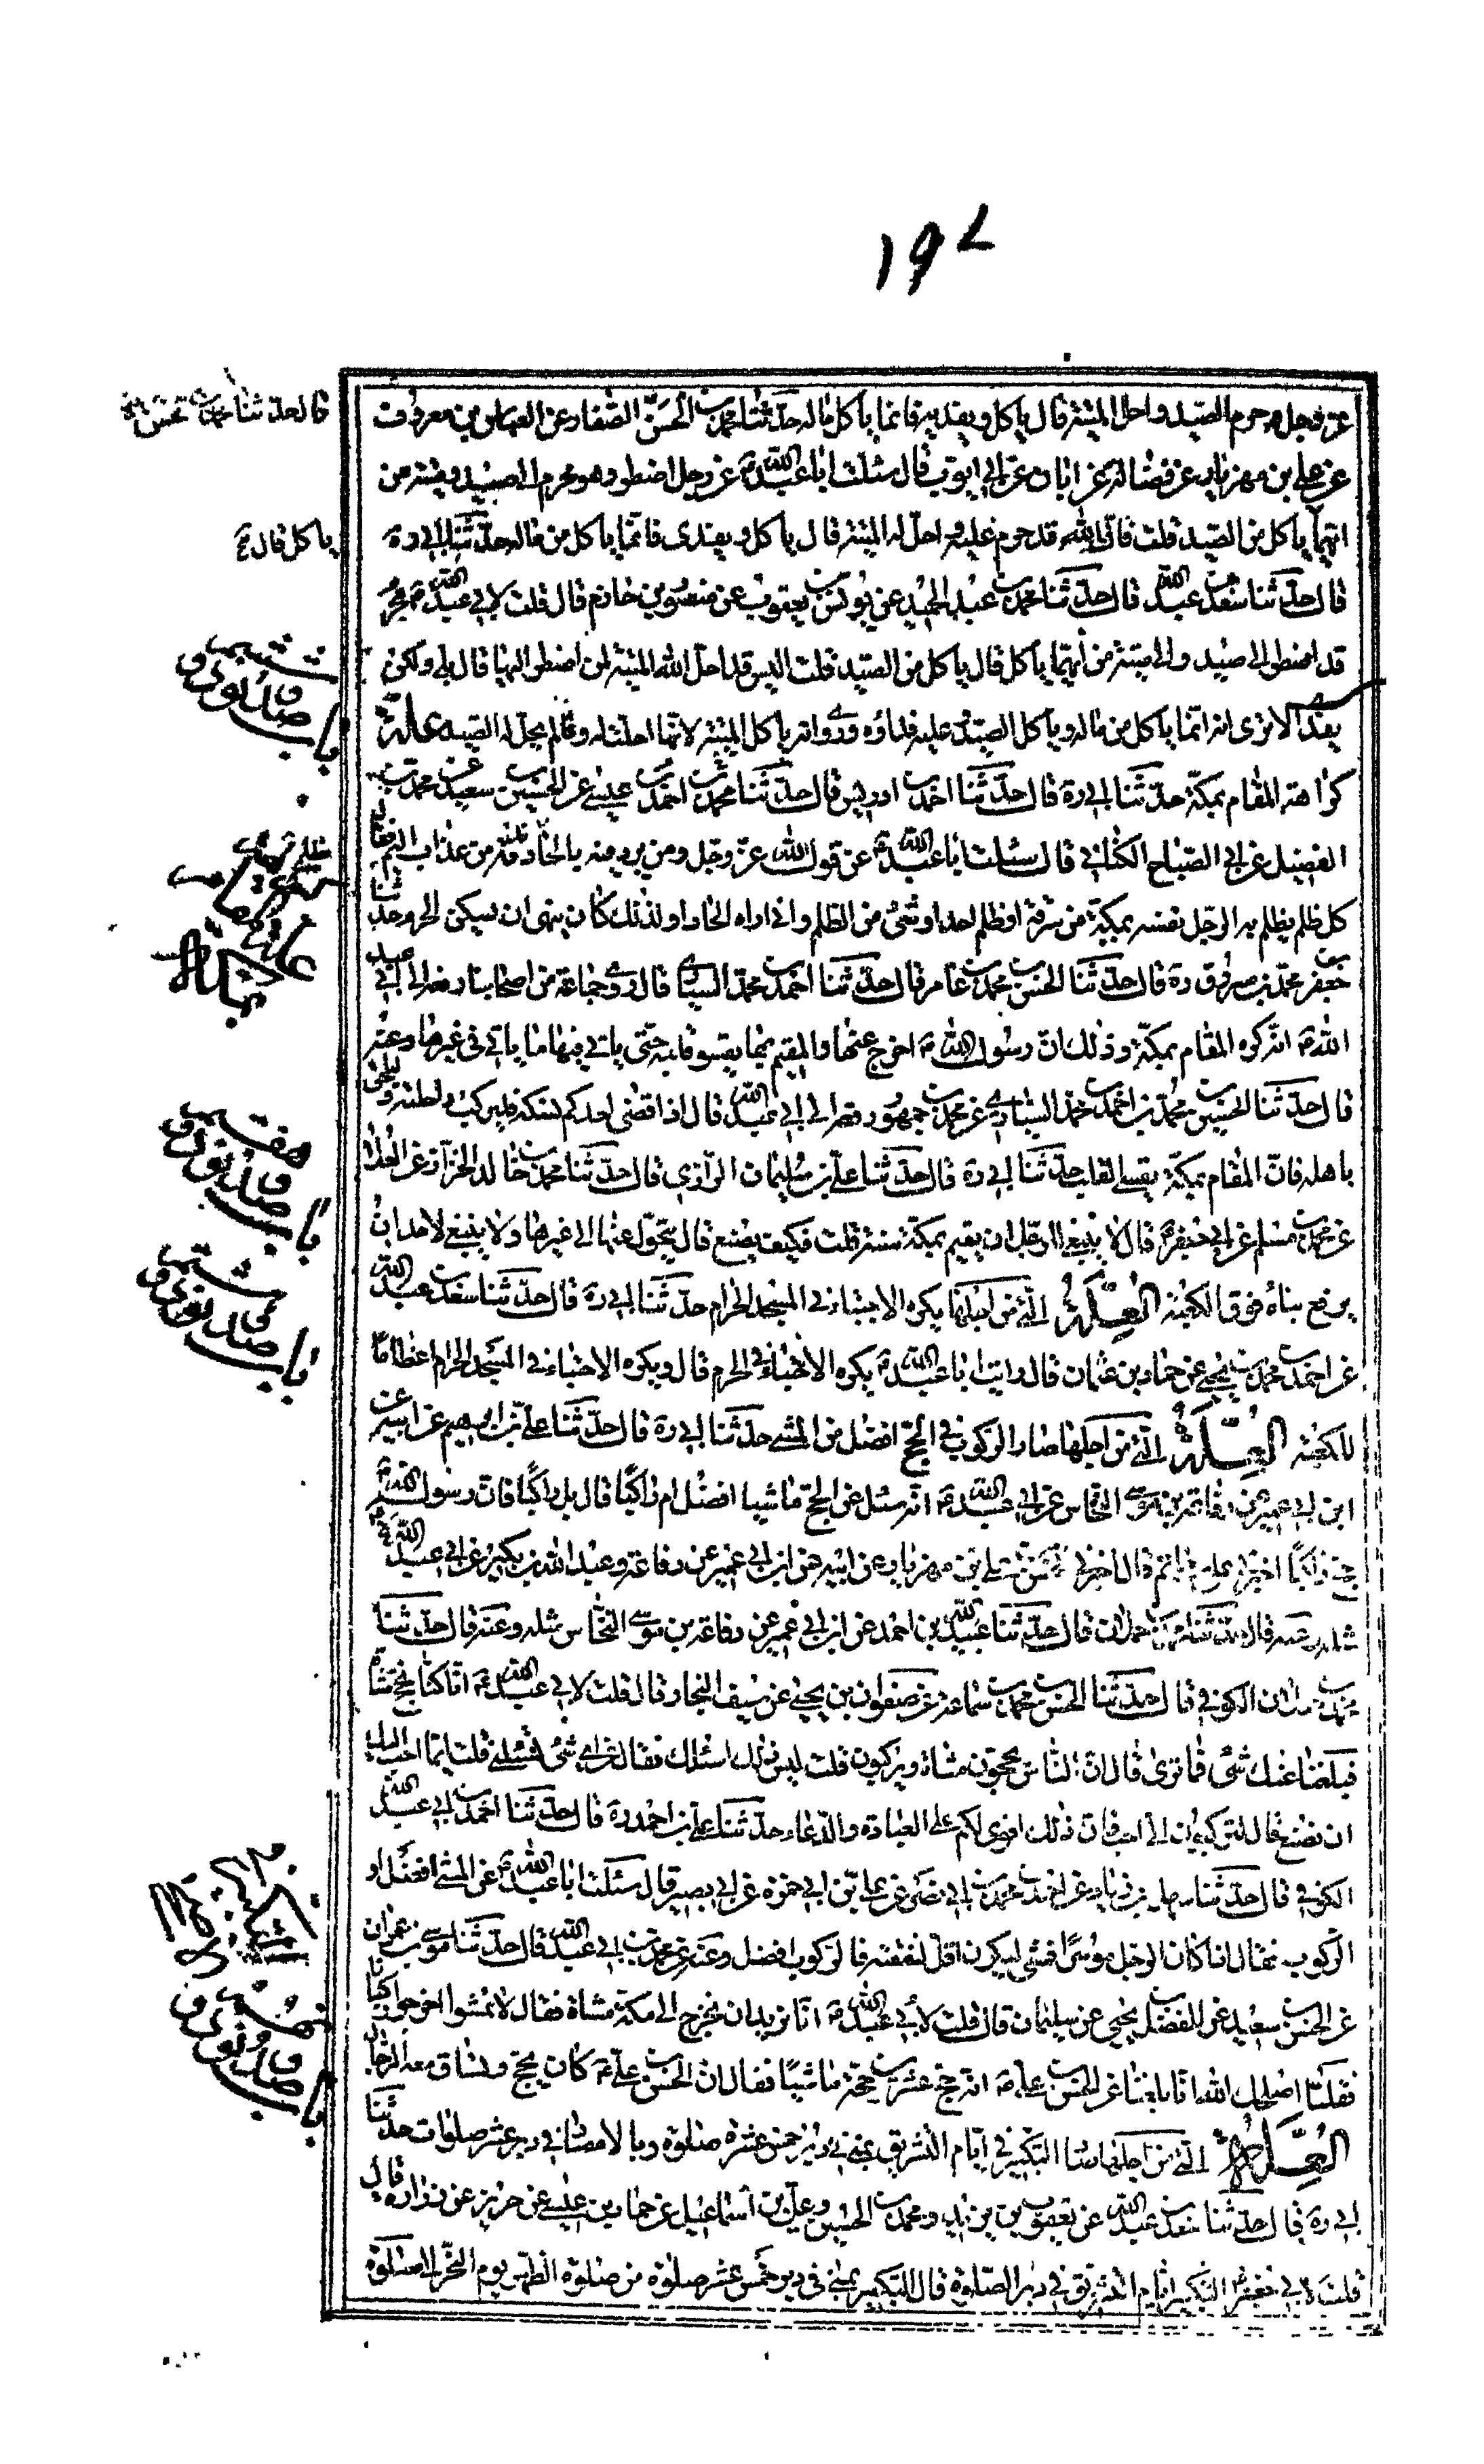 ١٩٧
عز و جل حرم الصيد و احل الميتة قال ياكل و يفديه فانما ياكل ماله حدثنا محمد بن الحسن الصفار عن العباس بن معروف
قال حدثنا محمد بن الحسن
عن علي بن مهزيار عن فضالة عن ابان عن ابي ايوب قال سئلت ابا عبد الله ع عن رجل اضطر و هو محرم الى صيد و ميتة من
ايهما ياكل من الصيد قلت فان الله قد حرم عليه و احل له الميتة قال ياكل و يفدى فانما ياكل من ماله حدثنا ابي ره
ياكل قال ع
قال حدثنا سعد بن عبد الله قال حدثنا محمد بن عبد الحميد عن يونس بن يعقوب عن منصور بن حازم قال قلت لابي عبد الله ع محرم
قد اضطر الى صيد و الى ميتة من ايهما ياكل قال ياكل من الصيد قلت اليس قد احل الله الميتة لمن اضطر اليها قال بلى ولكن
يفدى الا ترى انه انما ياكل من ماله و ياكل الصيد و عليه فداؤه و روى انه ياكل الميتة لانها احلت له و لم يحل له الصيد علة
باب صد و نود و ششم
كراهة المقام بمكة حدثنا ابي ره قال حدثنا احمد بن ادريس قال حدثنا محمد بن احمد بن عيسى عن الحسين بن سعيد عن محمد بن
الفضيل عن ابي الصباح الكناني قال سئلت ابا عبد الله ع عن قول الله عز و جل و من يرد فيه بالحاد بظلم نذقه من عذاب اليم فقال
كل ظلم يظلم به الرجل نفسه بمكة من سرقة او ظلم احد او شئ من الظلم فاني اراه الحادا و لذلك كان ينهى ان يسكن الحرم و حدثنا
جعفر بن محمد بن مسرور ره قال حدثنا الحسين بن محمد بن عامر قال حدثنا احمد بن محمد السيارى قال روى جماعة من اصحابنا رفعه الى ابي عبد
الله ع انه كره المقام بمكة و ذلك ان رسول الله ص اخرج عنها و المقيم بها يقسو قلبه حتى ياتي فيها ما ياتي في غيرها و عنه
قال حدثنا الحسين بن محمد بن احمد بن محمد السيارى عن محمد بن جمهور رفعه الى ابي عبد الله قال اذا قضى احدكم نسكه فليركب راحلته و ليلحق
باهله فان المقام بمكة يقسى القلب حدثنا ابي ره قال حدثنا علي بن سليمان الرازى قال حدثنا محمد بن خالد الخزاز عن العلا
باب صد و نود و هفتم
عن محمد بن مسلم عن ابي جعفر ع قال لا ينبغي للرجل ان يقيم بمكة سنة قلت فكيف يصنع قال يتحول عنها الى غيرها و لا ينبغي لاحد ان
يرفع بناه فوق الكعبة العلة التي من اجلها يكره الاحتباء في المسجد الحرام حدثنا ابي ره قال حدثنا سعد بن عبد الله
باب صد و نود و هشتم
عن احمد بن محمد بن يحيى عن حماد بن عثمان قال رايت ابا عبد الله ع يكره الاحتباء في الحرم قال و يكره الاحتباء في المسجد الحرام اعظاما
للكعبة العلة التي من اجلها صار الركوب في الحج افضل من المشى حدثنا ابي ره قال حدثنا علي بن ابرهيم عن ابيه عن
ابن ابي عمير عن رفاعة بن موسى النخاس عن ابي عبد الله ع انه سئل عن الحج ماشيا افضل ام راكبا قال بل راكبا فان رسول الله ص
حج راكبا اخبرني علي بن حاتم قال اخبرني الحسن بن علي بن مهزيار عن ابيه عن ابن ابي عمير عن رفاعة و عبد الله بن بكير عن ابي عبد الله ع
مثله و عنه قال حدثنا محمد بن حمدان قال حدثنا عبيد الله بن احمد عن ابن ابي عمير عن رفاعة بن موسى النخاس مثله و عنه قال حدثنا
محمد بن حمدان الكوفي قال حدثنا الحسن بن محمد بن سماعة عن صفوان بن يحيى عن سيف التمار قال قلت لابي عبد الله ع انا كنا نحج مشاة
فبلغنا عنك شئ فما ترى قال ان الناس يحجون مشاة و يركبون قلت ليس ذلك اسئلك فقال عن اي شئ تسئلني قلت ايما احب اليك
ان نصنع قال تركبون احب الي فان ذلك اقوى لكم على العبادة و الدعاء حدثنا علي بن احمد ره قال حدثنا محمد بن ابي عبد الله
الكوفي قال حدثنا سهل بن زياد عن احمد بن محمد بن ابي نصر عن علي بن ابي حمزة عن ابي بصير قال سئلت ابا عبد الله ع عن المشى افضل او
الركوب فقال اذا كان الرجل موسرا فمشى ليكون اقل لنفقته فالركوب افضل و عنه عن محمد بن ابي عبد الله قال حدثنا موسى بن عمران
عن الحسين بن سعيد عن الفضل بن يحيى عن سليمان قال قلت لابي عبد الله ع انا نريد ان نخرج الى مكة مشاة فقال لا تمشوا اخرجوا ركبانا
باب صد و نود و نهم
فقلنا اصلحك الله انا بلغنا عن الحسن بن علي ع انه حج عشرين حجة ماشيا فقال ان الحسن بن علي ع كان يحج و تساق معه الرحال
العلة التي من اجلها سن التكبير في ايام التشريق بمنى في دبر خمس عشرة صلوة و بالامصار في دبر عشر صلوات حدثنا
ابي ره قال حدثنا سعد بن عبد الله عن يعقوب بن يزيد و محمد بن الحسين و علي بن اسماعيل عن حماد بن عيسى عن حريز عن زرارة قال
قلت لابي جعفر ع التكبير ايام التشريق في دبر الصلوة قال التكبير بمنى في دبر خمس عشر صلوة من صلوة الظهر يوم النحر الى صلوة